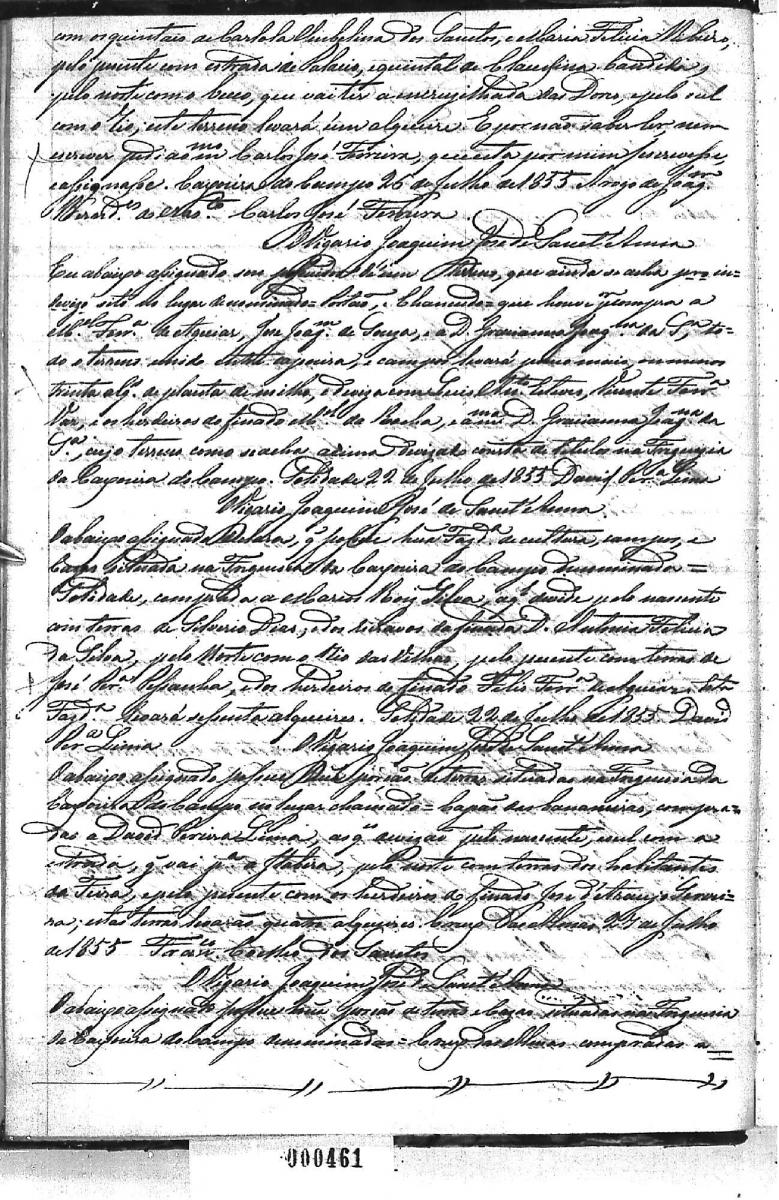 com os quintais de Carlota Umbelina dos Sanctos, e Maria Felicia
pelo puente com estrada de Palacio, e quintal de Claudina Candida,
pelo norte com o beco, que vai ter a encruzilhada das Dores, e pelo sul
com o Rio; este terreno levará um alqueire. E por não saber ler nem
escrever pedi ao mmo Carlos José Ferreira, que esta por mim escrevesse,
e assignasse. Caxoeira do Campo 26 de Julho de 1855 Arogo de Joaqm
Carlos José Ferreira
O Vigario Joaquim José de Sanct'Anna
Eu abaixo assignado sou de um terreno, que ainda se acha pro in-
deviso sito no lugar denominado = Portão, e Chancudo = que houve pr compra a
Mel Ferra de Aguiar, José Joaqm de Souza, e a D. Gracianna Joaqna da Sa, to-
do o terreno unido entre capoeira, e campos levará pouco mais, ou menos
trinta alqs de planta de milho, e deviza com Luis Esteves, Vicente Ferra
Vaz, e os herdeiros do finado Mel da Rocha, e a mma D. Gracianna Joaqna da
Sa, cujo terreno como se acha acima devizado consta de titulos na Freguesia
da Caxoeira do Campo. Soledade 22 de Julho de 1855 David Pera Lima
O Vigario Joaquim José de Sanct'Anna
O abaixo assignado declara, q possue hua Fazda de cultura, campos, e
Cazas situada na Freguesia da Caxoeira do Campo denominada =
Soledade, comprada a Marcos Roiz Silva, a ql devide pelo nascente
com terras de Silverio Dias, e dos escravos da finada D. Antonia Felicia
da Silva, pelo Norte com o Rio das Velhas, pelo puente com terras de
José Pera Pessanha, e dos herdeiros do finado Felis Ferra de Aguiar: esta
Fazda levará sessenta alqueires. Soledade 22 de Julho de 1855 David
Pera Lima O Vigario Joaquim José de Sanct'Anna
O abaixo assignado possue hua porção de terras situadas na Freguesia da
Caxoeira do Campo no lugar chamado = Capão das Bananeiras, compra-
das a David Pereira Lima, as qs devizão pelo nascente, e sul com a
estrada, q vai pa a Itabira, pelo Norte com terras dos habitantes
da Feira, e pelo puente com os herdeiros do finado José d'Araujo
estas terras levarão quatro alqueires. 27 de Julho
de 1855 Franco Coelho dos Sanctos
O Vigario Joaquim José de Sanct'Anna
O abaixo assignado possue hua porção de terras e cazas situadas na Freguesia
da Caxoeira do Campo denominadas = Cruz das Almas compradas a
000461